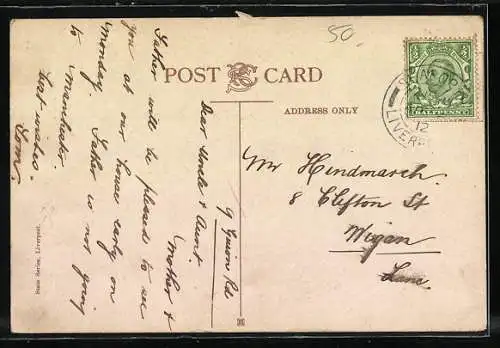 50.
POST CARD
ADDRESS ONLY
HALFPENNY
12
Mr Hindmarch.
8 Clifton St
Wigan
Lanc.
Rd
Dear Uncle & Aunt
Mother &
Father will be pleased to see
you at our house early on
Monday. Father is not going
to Manchester.
best wishes.
Tom.
State Series, Liverpool.